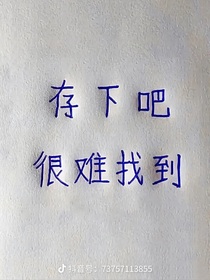 存下吧
很难找到
抖音号：73757113855